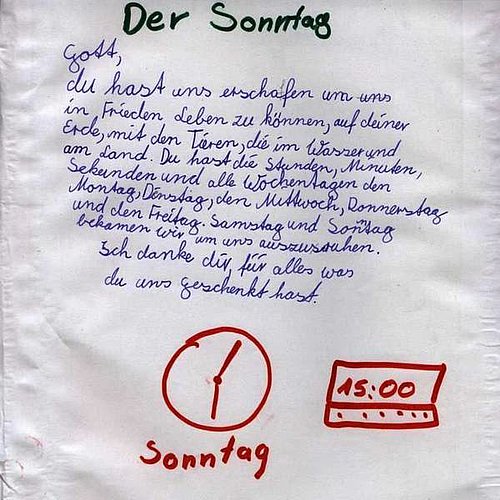 Der Sonntag
Gott,
du hast uns erschafen um uns
in Frieden Leben zu können, auf deiner
Erde, mit den Tieren, die im Wasser und
am Land. Du hast die Stunden, Minuten,
Sekunden und alle Wochentagen den
Montag, Dienstag, den Mittwoch, Donnerstag
und den Freitag. Samstag und Sontag
bekamen wir um uns auszuruhen.
Ich danke dir, für alles was
du uns geschenkt hast.
15:00
Sonntag